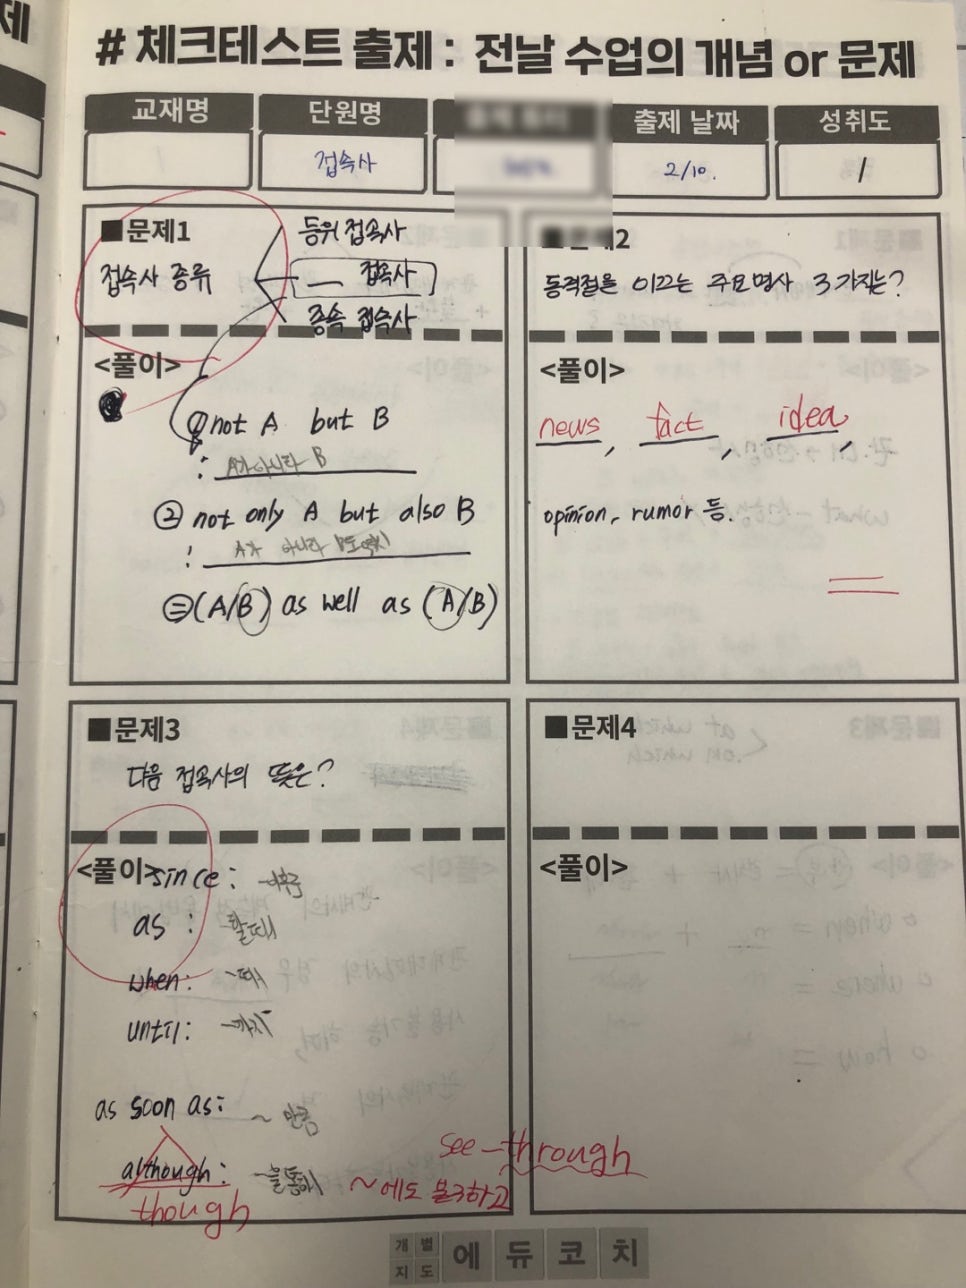 # 체크테스트 출제 : 전날 수업의 개념 or 문제
교재명 단원명 출제 날짜 성취도
/ 접속사 2/10. /
■문제1
접속사 종류
등위 접속사
__ 접속사
종속 접속사
<풀이>
① not A but B
: A가 아니라 B
② not only A but also B
: A가 아니라 B도 역시
= (A/B) as well as (A/B)
문제2
동격절을 이끄는 주요명사 3가지는?
<풀이>
news, fact, idea,
opinion, rumor 등.
■문제3
다음 접속사의 뜻은?
<풀이>
since: ~이후
as: ~할때
when: ~때
until: ~까지
as soon as: ~만큼
although: ~을 통해
though
see-through
~에도 불구하고
■문제4
<풀이>
개별지도 에듀코치